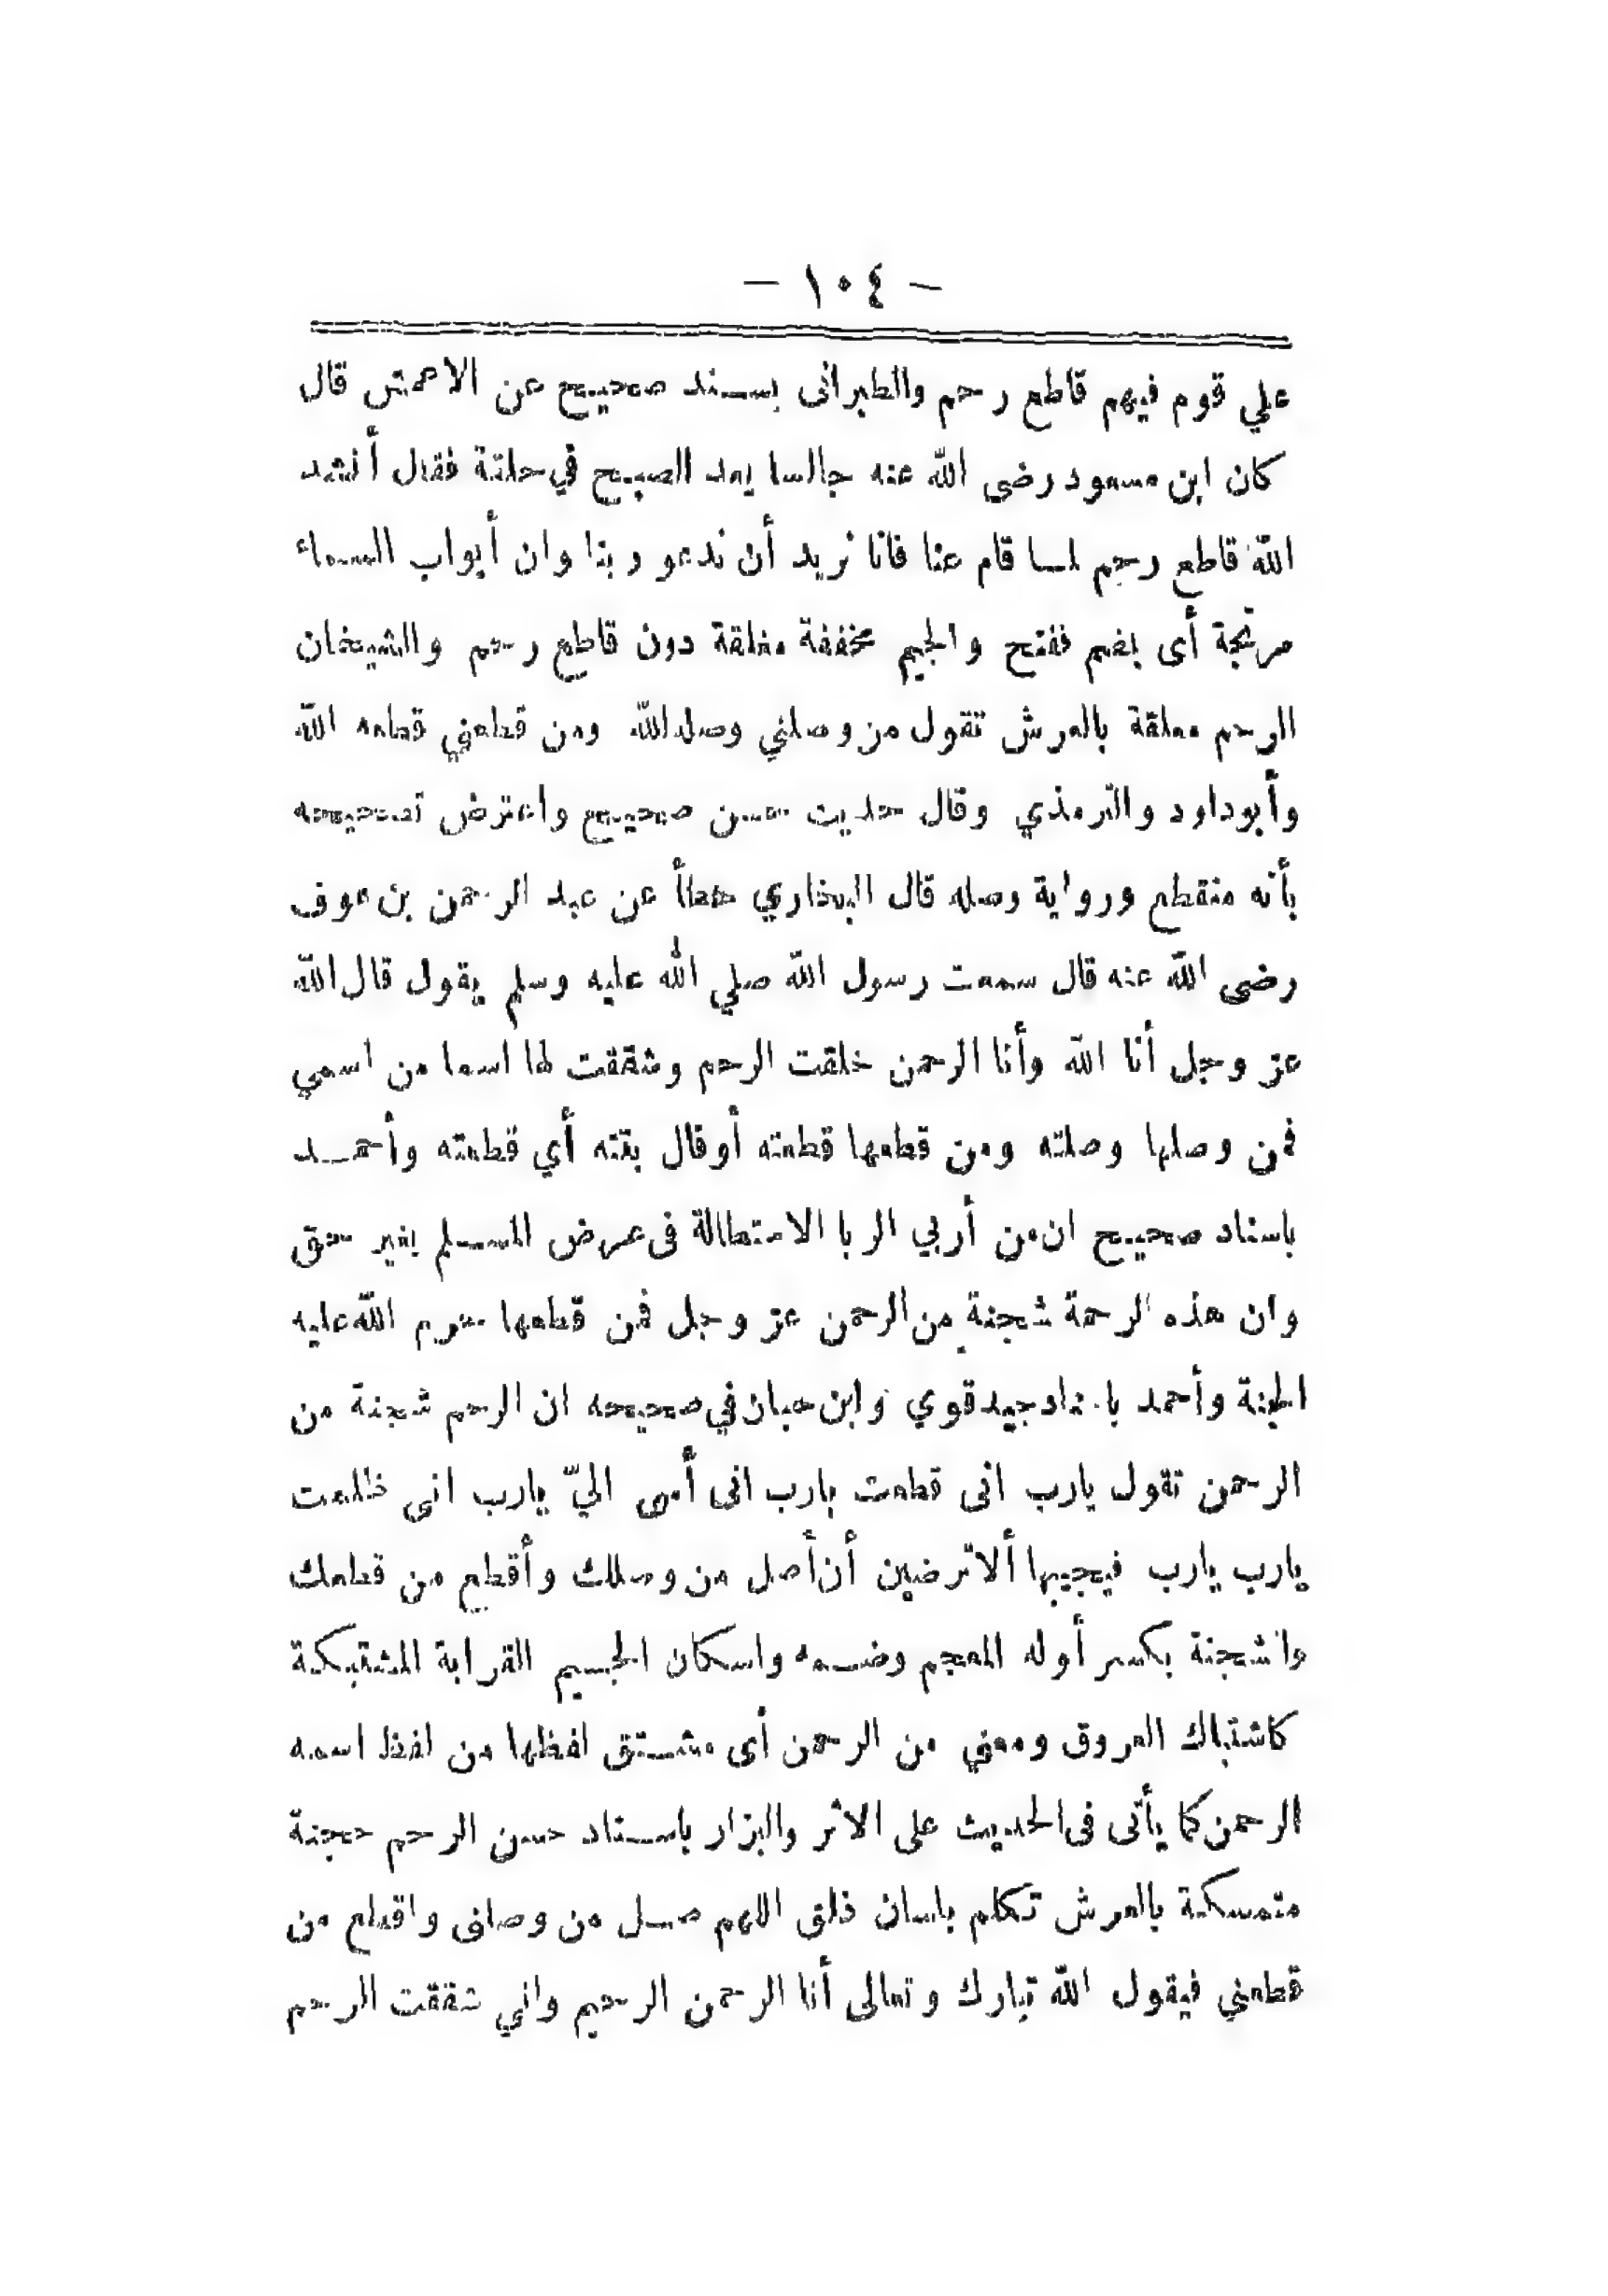 — ١٠٤ —
علي قوم فيهم قاطع رحم والطبرانى بسند صحيح عن الاعمش قال
كان ابن مسعود رضى الله عنه جالسا بعد الصبح في حلقة فقال أنشد
الله قاطع رحم لما قام عنا فانا نريد أن ندعو ربنا وان أبواب السماء
مرتجة أى بضم ففتح والجيم مخففة مغلقة دون قاطع رحم والشيخان
الرحم معلقة بالعرش تقول من وصلني وصله الله ومن قطعني قطعه الله
وأبو داود والترمذي وقال حديث حسن صحيح واعترض تصحيحه
بأنه منقطع ورواية وصله قال البخاري خطأ عن عبد الرحمن بن عوف
رضى الله عنه قال سمعت رسول الله صلي الله عليه وسلم يقول قال الله
عز وجل أنا الله وأنا الرحمن خلقت الرحم وشققت لها اسما من اسمي
فمن وصلها وصلته ومن قطعها قطعته أو قال بتته أي قطعته وأحمد
باسناد صحيح ان من أربي الربا الاستطالة فى عرض المسلم بغير حق
وان هذه الرحمة شجنة من الرحمن عز وجل فمن قطعها حرم الله عليه
الجنة وأحمد باسناد جيد قوي وابن حبان في صحيحه ان الرحم شجنة من
الرحمن تقول يارب انى قطعت يارب انى أسى الىّ يارب انى ظلمت
يارب يارب فيجيبها ألا ترضين أن أصل من وصلك وأقطع من قطعك
والشجنة بكسر أوله المعجم وضمه واسكان الجيم القرابة المشتبكة
كاشتباك العروق ومعني من الرحمن أى مشتق لفظها من لفظ اسمه
الرحمن كما يأتى فى الحديث على الاثر والبزار باسناد حسن الرحم حجنة
متمسكة بالعرش تكلم بلسان ذلق اللهم صل من وصلنى واقطع من
قطعني فيقول الله تبارك وتعالى أنا الرحمن الرحيم واني شققت الرحم